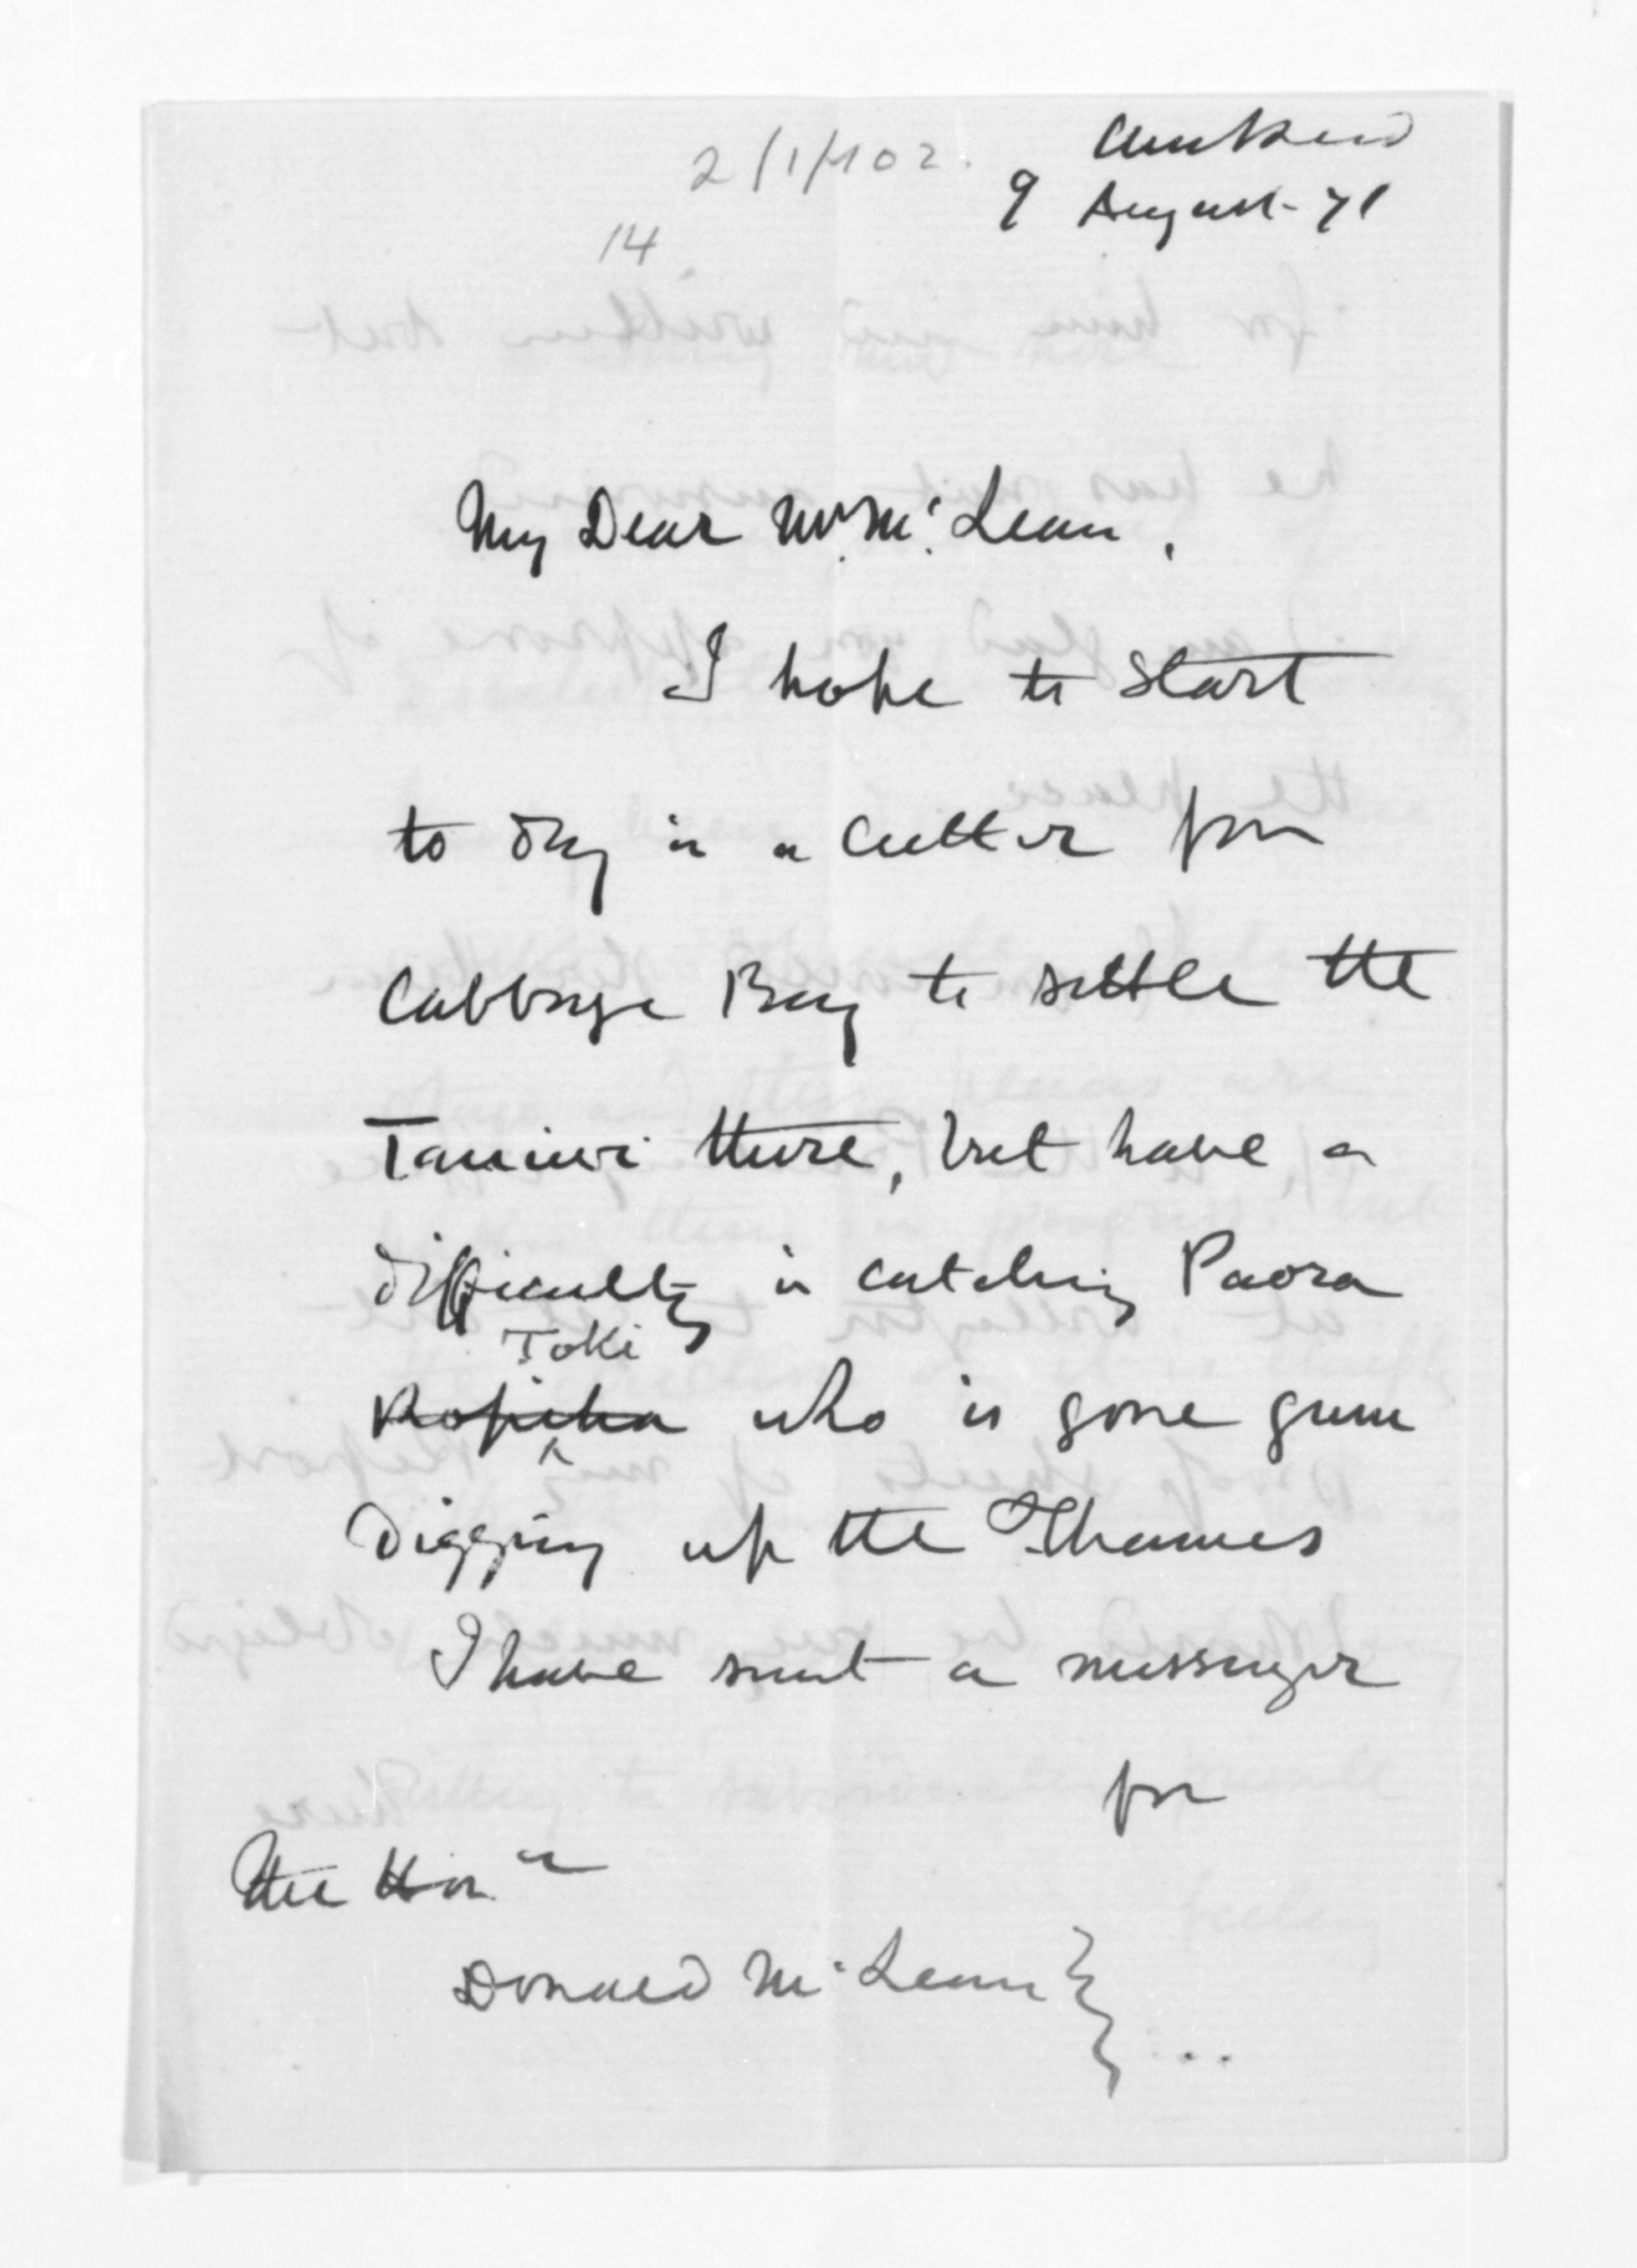 Auckland
9 August - 71
14
My Dear Mr. McLean,
I hope to start
to day in a cutter for
Cabbage Bay to settle the
Taniwi there, but have a
difficulty in catching Paora
Toki
Ropiha who is gone gum
digging up the Thames
I have sent a messenger
for
The Hon
Donald McLean